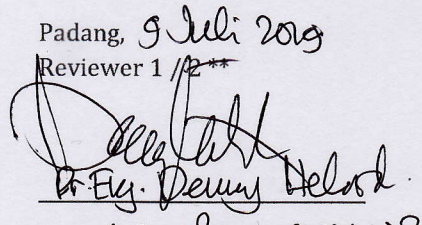 Padang, 9 Juli 2019
Reviewer 1 / 2 **
Dr. Eng. Denny Helard.